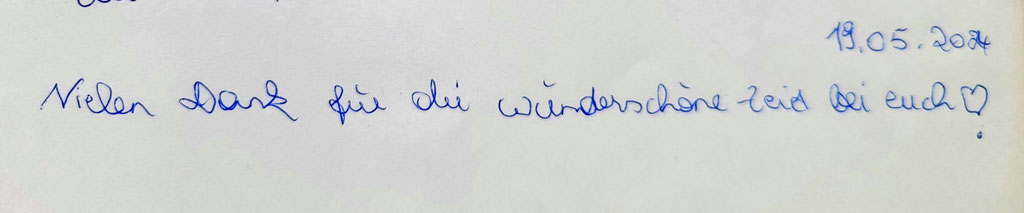 19.05.2024
Vielen Dank für die wünderschöne Zeit bei euch♡!